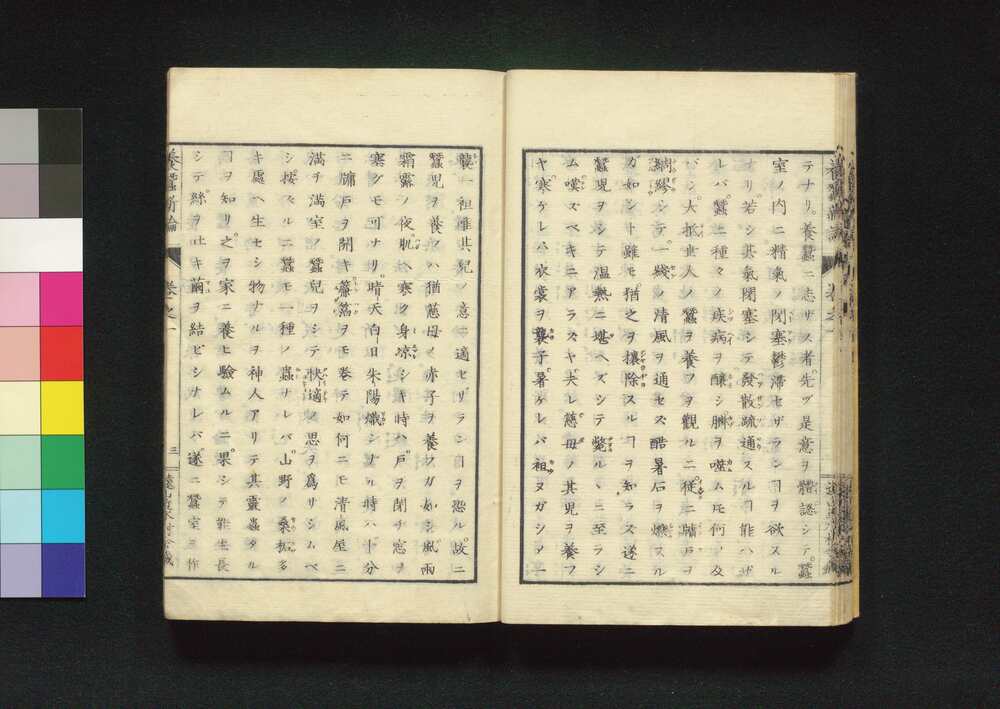 テナリ。養蠶ニ志ザス者先ヅ是意ヲ體認シテ。蠶
室ノ内ニ精氣ノ閉塞鬱滯セザランヿヲ欲スル
ナリ。若シ其氣閉塞シテ發散疏通スルヿ能ハザ
レバ。蠶ニ種々ノ疾病ヲ釀シ臍ヲ噬ムトモ何ノ及
バン。大抵世人ノ蠶ヲ養フヲ觀ルニ從ニ牖戸ヲ
綢繆シテ一綫ノ清風ヲ通セズ酷暑石ヲ爍スル
ガ如シト雖モ猶之ヲ攘除スルヿヲ知ラズ遂ニ
蠶兒ヲシテ温熱ニ堪ヘズシテ斃ルヽニ至ラシ
ム嘆ズベキニアラズヤ夫レ慈母ノ其兒ヲ養フ
ヤ寒ケレバ衣裳ヲ襲子暑ケレバ袒ヌガシメ一
襲一袒惟其兒ノ意ニ適セザランヿヲ恐ル。故ニ
蠶兒ヲ養フハ猶慈母ノ赤子ヲ養フガ如シ風雨
霜露ノ夜肌ヘ寒ク身凉シキ時ハ戸ヲ閉チ窓ヲ
塞グモ可ナリ。晴天白日朱陽熾シナル時ハ十分
ニ牖戸ヲ開キ簾箔ヲモ巻テ如何ニモ清風屋ニ
満チ満室ノ蠶兒ヲシテ快適ノ思ヲ爲リシムベ
シ按スルニ蠶モ一種ノ蟲ナレバ山野ノ桑柘多
キ處ヘ生セシ物ナルヲ神人アリテ其靈蟲タル
ヿヲ知リ之ヲ家ニ養ヒ驗ムルニ果シテ能生長
シテ絲ヲ吐キ繭ヲ結ビシナレバ遂ニ蠶室ヲ作
養蠶新論
卷之一
三